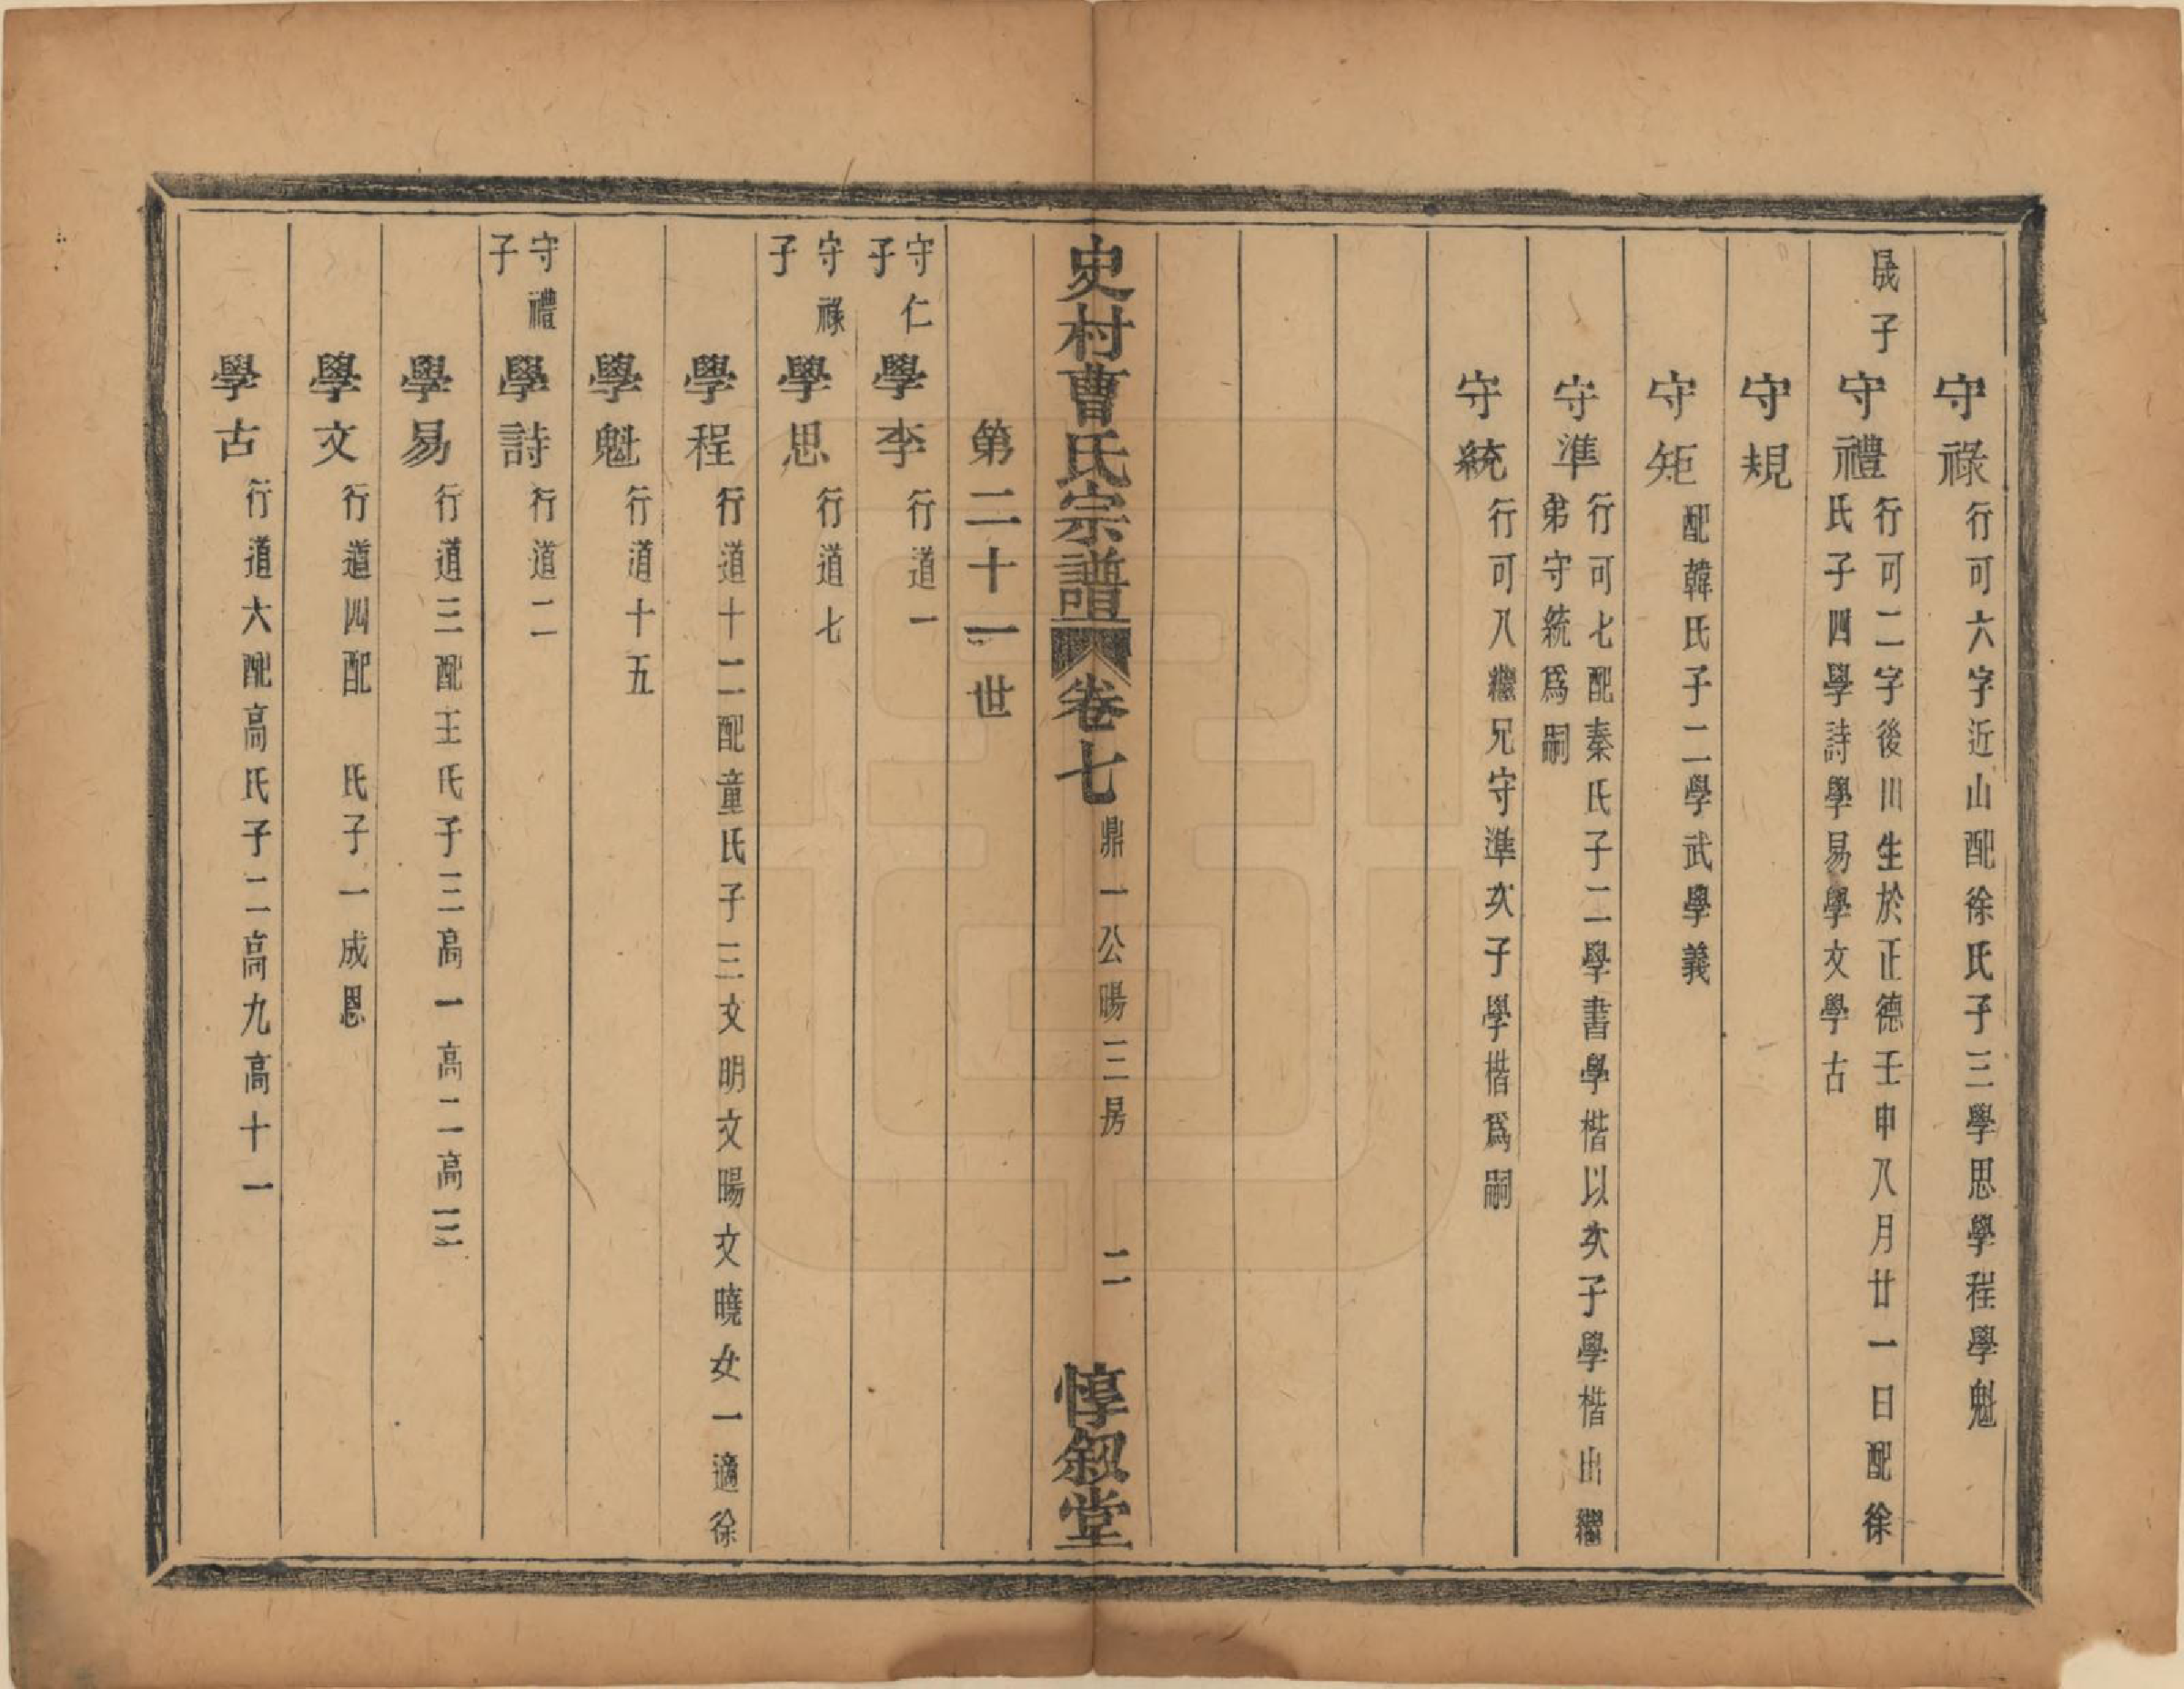 守祿行可六字近山配徐氏子三學思學程學魁
晟子
守禮行可二字後川生於正德壬申八月廿一日配徐
氏子四學詩學易學文學古
守規
守矩配韓氏子二學武學義
守準行可七配秦氏子二學書學楷以次子學楷出繼
弟守統爲嗣
守統行可八繼兄守準次子學楷爲嗣
史村曹氏宗譜 卷七 鼎一公暘三房 二 惇叙堂
第二十一世
守仁子
學李行道一
守祿子
學思行道七
學程行道十二配童氏子三文明文暘文曉女一適徐
學魁行道十五
守禮子
學詩行道二
學易行道三配王氏子三高一高二高三
學文行道四配 氏子一成恩
學古行道六配高氏子二高九高十一